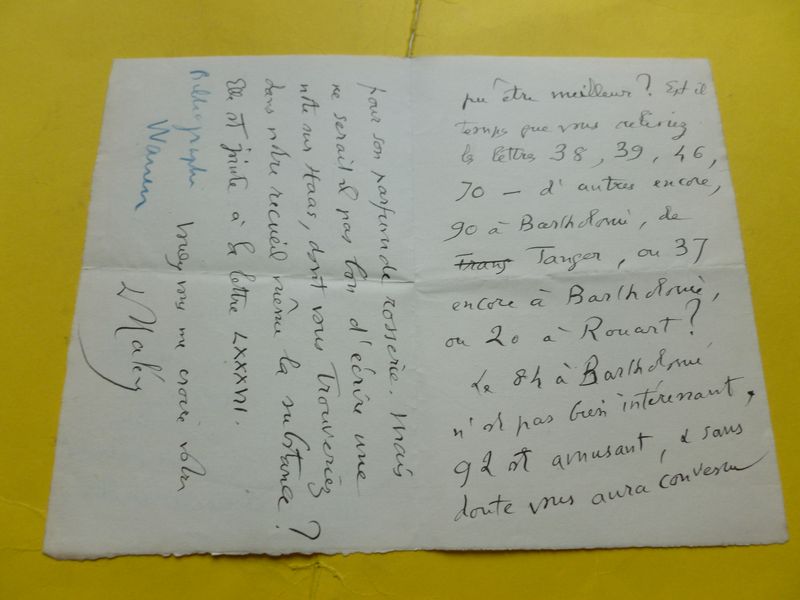 pu être meilleur? Est il
temps que vous relisiez
les lettres 38, 39, 46,
70 — d'autres encore,
90 à Bartholomé, de
Trans Tanger, ou 37
encore à Bartholomé,
ou 20 à Rouart?
Le 84 à Bartholomé
n'est pas bien intéressant,
92 est amusant, & sans
doute vous aura convenu
pour son parfum de rosserie. Mais
ne serait il pas bon d'écrire une
note sur Haas, dont vous trouveriez
dans notre recueil même la substance?
Elle est jointe à la lettre LXXXVI.
Bibliographie
Warren
Vous me croire votre
DHalévy